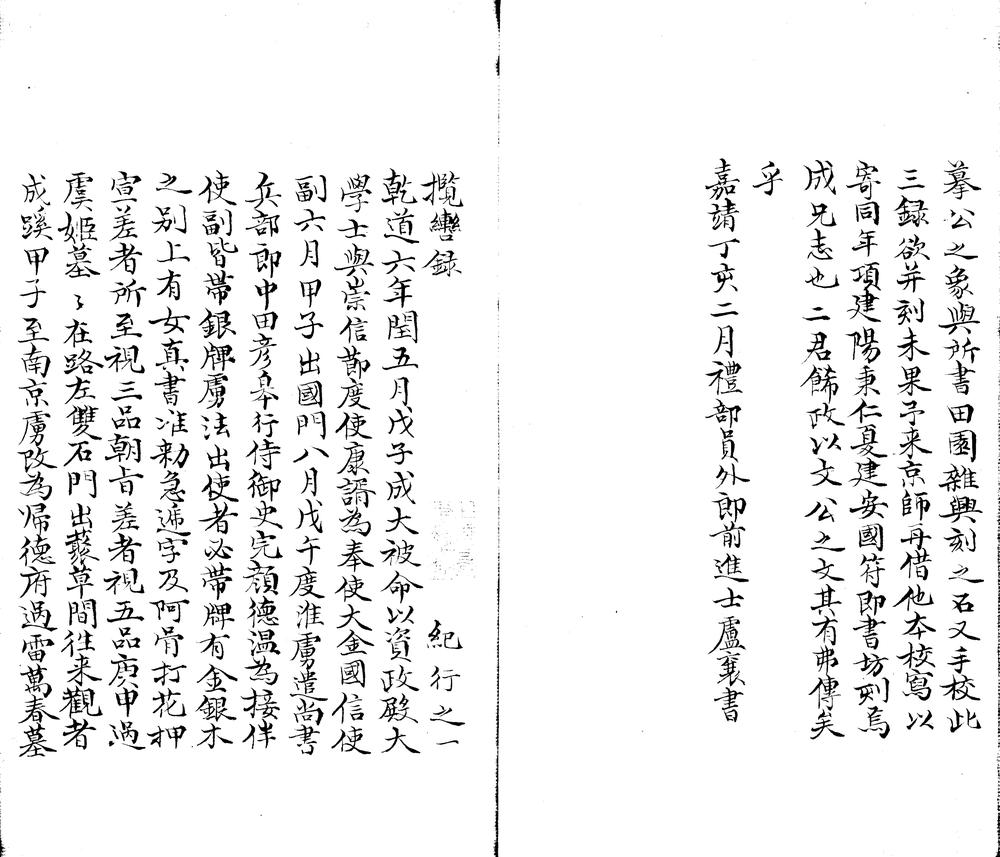 摹公之象與所書田園雜興刻之石又手校此
三録欲并刻未果予来京師再借他本校寫以
寄同年項建陽秉仁夏建安國符即書坊刻焉
成兄志也二君餙政以文公之文其有弗傳矣
乎
嘉靖丁亥二月禮部員外郎前進士盧襄書
攬轡録
紀行之一
乾道六年閏五月戊子成大被命以資政殿大
學士與崇信節度使康諝為奉使大金國信使
副六月甲子出國門八月戊午度淮虜遣尚書
兵部郎中田彦皋行侍御史完顔德温為接伴
使副皆帶銀牌虜法出使者必帶牌有金銀木
之别上有女真書准勑急遞字及阿骨打花押
宣差者所至視三品朝旨差者視五品庚申過
虞姬墓〻在路左雙石門出藂草間往来觀者
成蹊甲子至南京虜改為歸德府過雷萬春墓